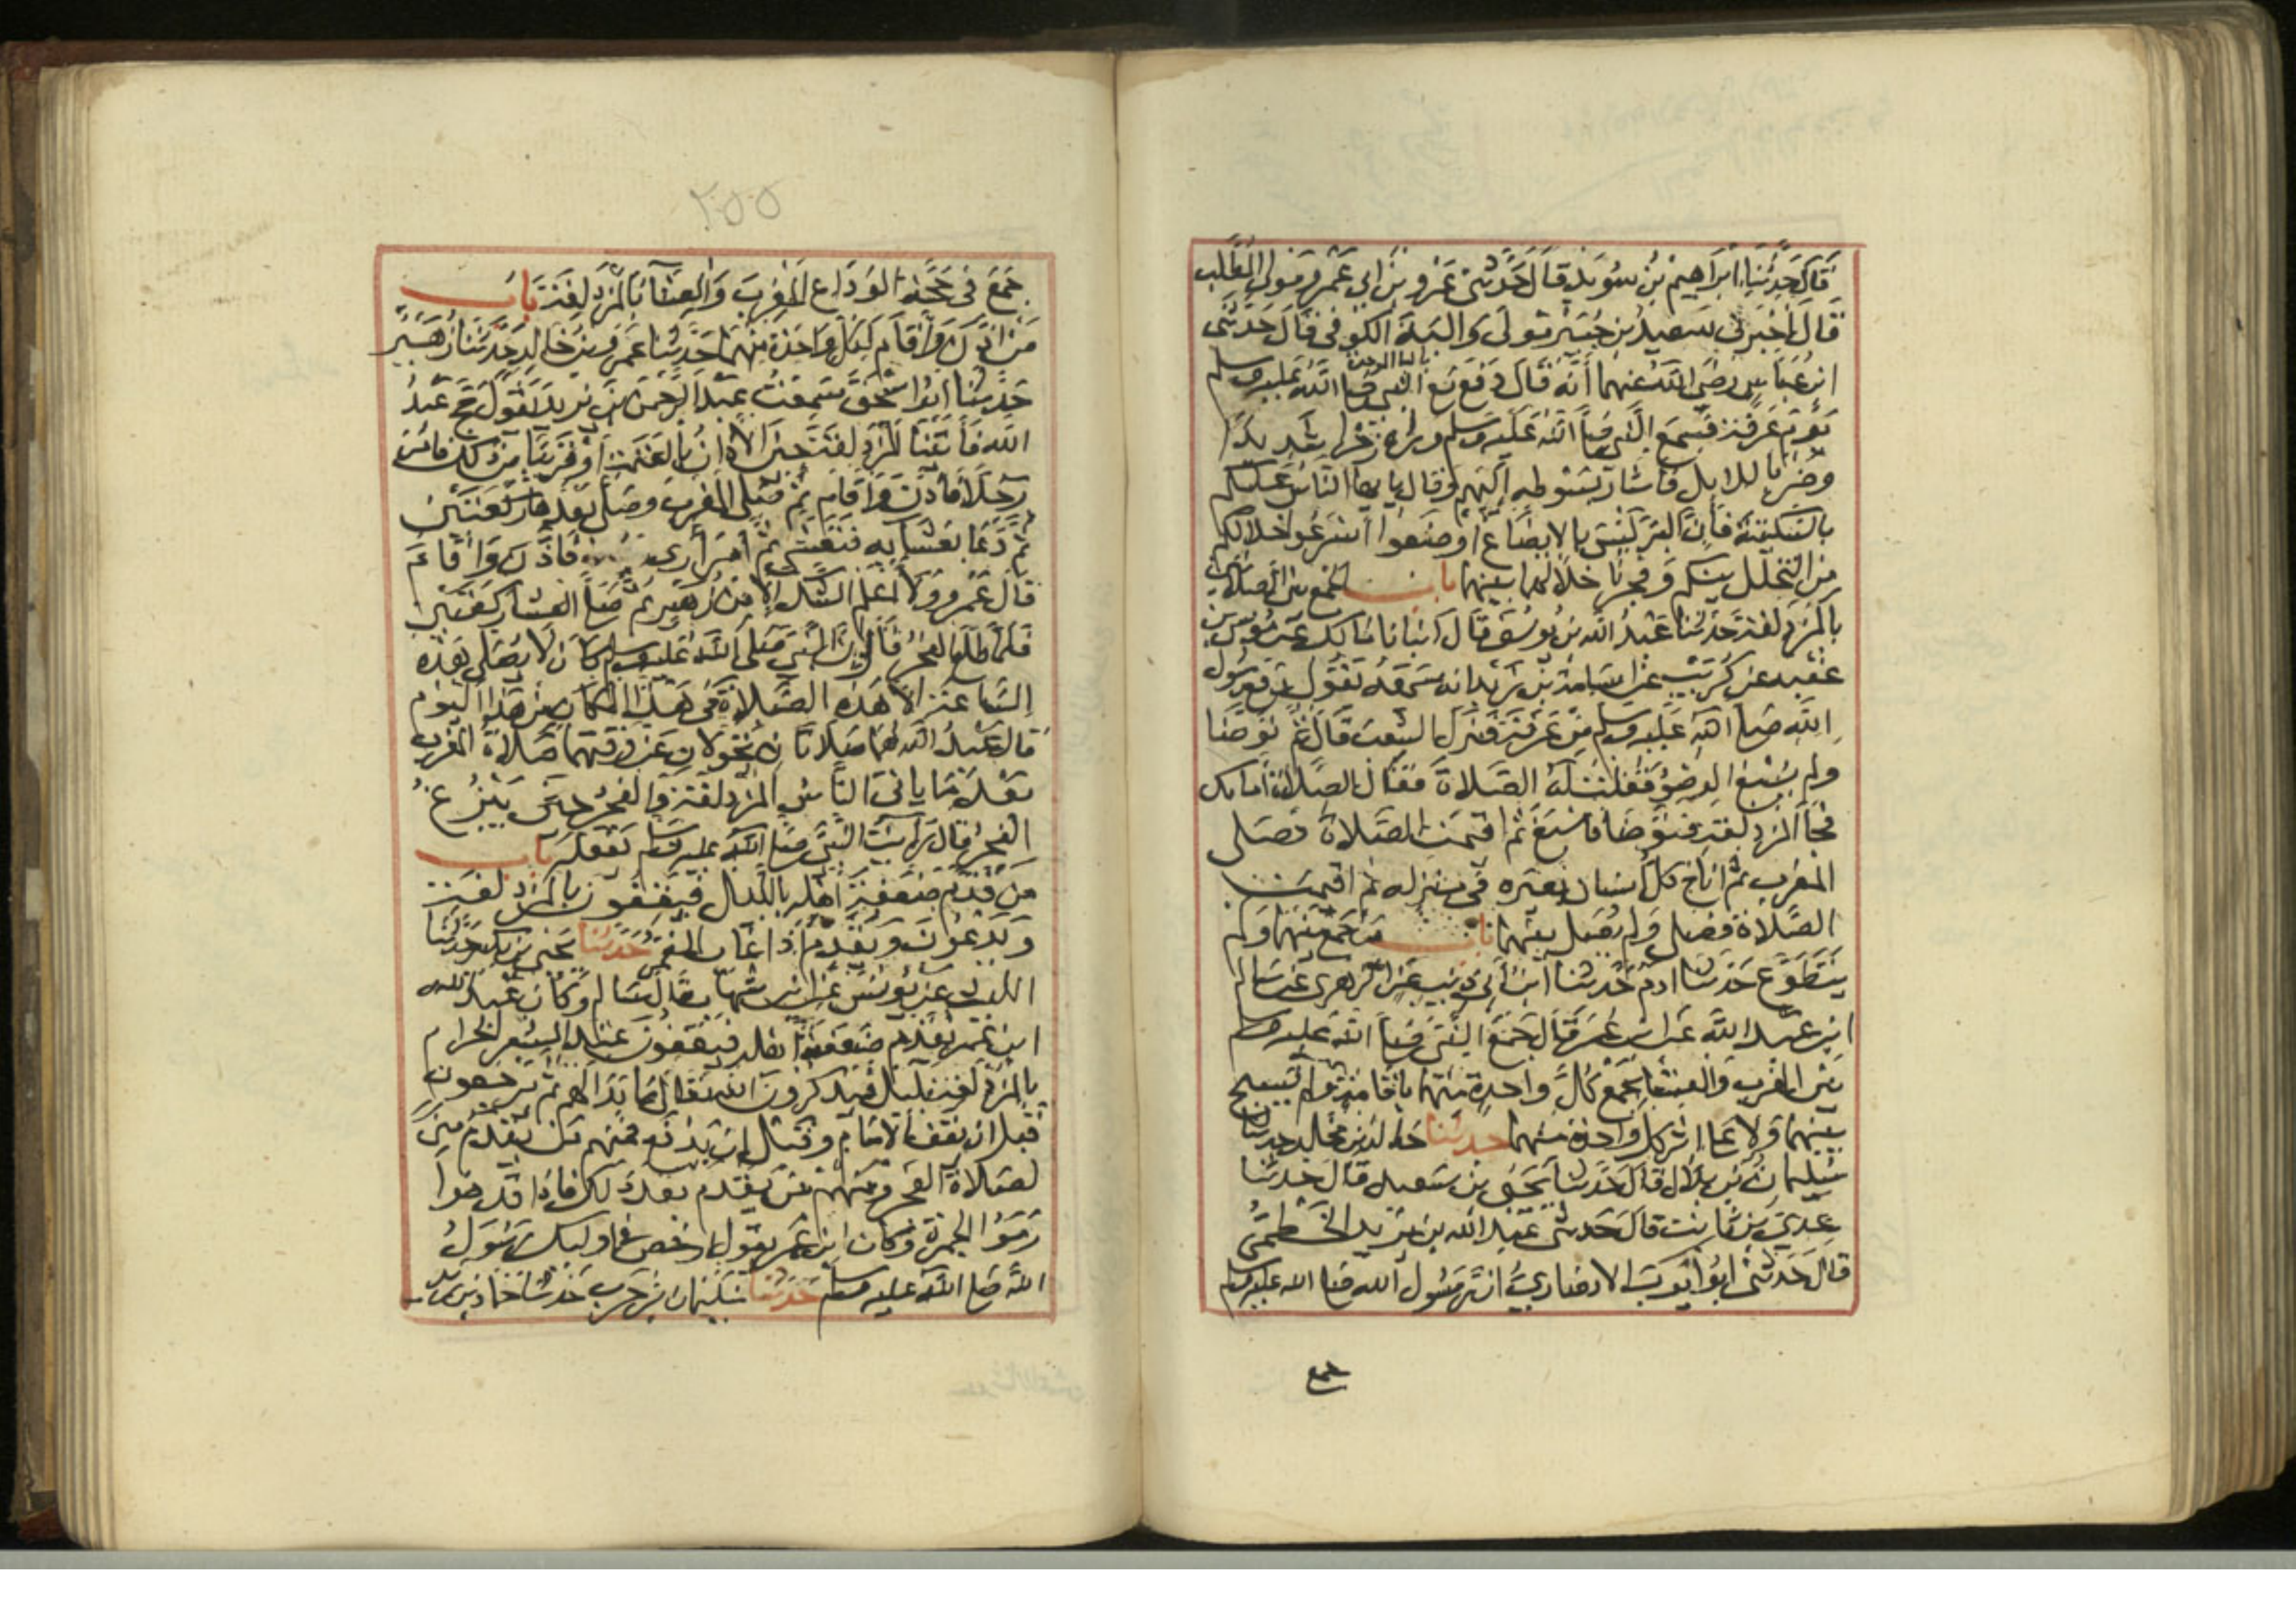 قال حدثنا ابراهيم بن سويد قال حدثني عمرو بن ابي عمرو مولى المطلب
قال اخبرني سعيد بن جبير مولى والبة الكوفي قال حدثني
ابن عباس رضي الله عنهما أنه قال دفع مع النبي صلى الله عليه وسلم
يوم عرفة فسمع النبي صلى الله عليه وسلم وراه زجرا شديدا
وضربا للابل فاشار بسوطه إليهم وقال يا يها الناس عليكم
بالسكينة فإن البر ليس بالايضاع أوضعوا أسرعوا خلالكم
من التخلل بينكم وفجرنا خلالهما بينهما باب الجمع بين الصلاتين
بالمزدلفة حدثنا عبد الله بن يوسف قال انبانا مالك عن موسى بن
عقبة عن كريب عن اسامة بن زيد انه سمعه يقول دفع رسول
الله صلى الله عليه وسلم من عرفة فنزل الشعب قال ثم توضا
ولم يسبغ الوضوء فقلت له الصلاة فقال الصلاة أمامك
فجا المزدلفة فتوضا فاسبغ ثم اقيمت الصلاة فصلى
المغرب ثم اناخ كل إنسان بعيره في منزله ثم اقيمت
الصلاة فصلى ولم يصل بينهما باب من جمع بينهما ولم
يتطوع حدثنا ادم حدثنا ابن أبي ذئب عن الزهري عن سالم
ابن عبد الله عن ابن عمر قال جمع النبي صلى الله عليه وسلم
بين المغرب والعشا بجمع كل واحدة منهما باقامة ولم يسبح
بينهما ولا على اثر كل واحدة منهما حدثنا خالد بن مخلد حدثنا
سليمان بن بلال قال حدثنا يحيى بن سعيد قال حدثنا
عدي بن ثابت قال حدثني عبد الله بن يزيد الخطمي
قال حدثني ابو ايوب الانصاري ان رسول الله صلى الله عليه وسلم
جمع
٢٥٥
جمع في حجة الوداع المغرب والعشا بالمزدلفة باب
من اذن واقام لكل واحدة منهما حدثنا عمرو بن خالد حدثنا زهير
حدثنا ابو اسحق سمعت عبد الرحمن بن يزيد يقول حج عبد
الله فأتينا المزدلفة حين الأذان بالعتمة أو قريبا من ذلك فامر
رجلا فأذن واقام ثم صلى المغرب وصلى بعدها ركعتين
ثم دعا بعشايه فتعشى ثم أمر أرى فأذن واقام
قال عمرو ولا أعلم الشك إلا من زهير ثم صلى العشا ركعتين
فلما طلع الفجر قال ان النبي صلى الله عليه وسلم كان لا يصلي هذه
الساعة إلا هذه الصلاة في هذا المكان من هذا اليوم
قال عبد الله هما صلاتان تحولان عن وقتهما صلاة المغرب
بعد ما ياتي الناس المزدلفة والفجر حين يبزغ
الفجر قال رأيت النبي صلى الله عليه وسلم يفعله باب
من قدم ضعفة أهله بالليل فيقفون بالمزدلفة
ويدعون ويقدم إذا غاب القمر حدثنا يحيى بن بكير حدثنا
الليث عن يونس عن ابن شهاب قال سالم وكان عبد الله
ابن عمر يقدم ضعفة أهله فيقفون عند المشعر الحرام
بالمزدلفة بليل فيذكرون الله تعالى ما بدا لهم ثم يرجعون
قبل ان يقف الامام وقبل ان يدفع فمنهم من يقدم منى
لصلاة الفجر ومنهم من يقدم بعد ذلك فاذا قدموا
رموا الجمرة وكان ابن عمر يقول ارخص في اوليك رسول
الله صلى الله عليه وسلم حدثنا سليمان بن حرب حدثنا حماد بن زيد